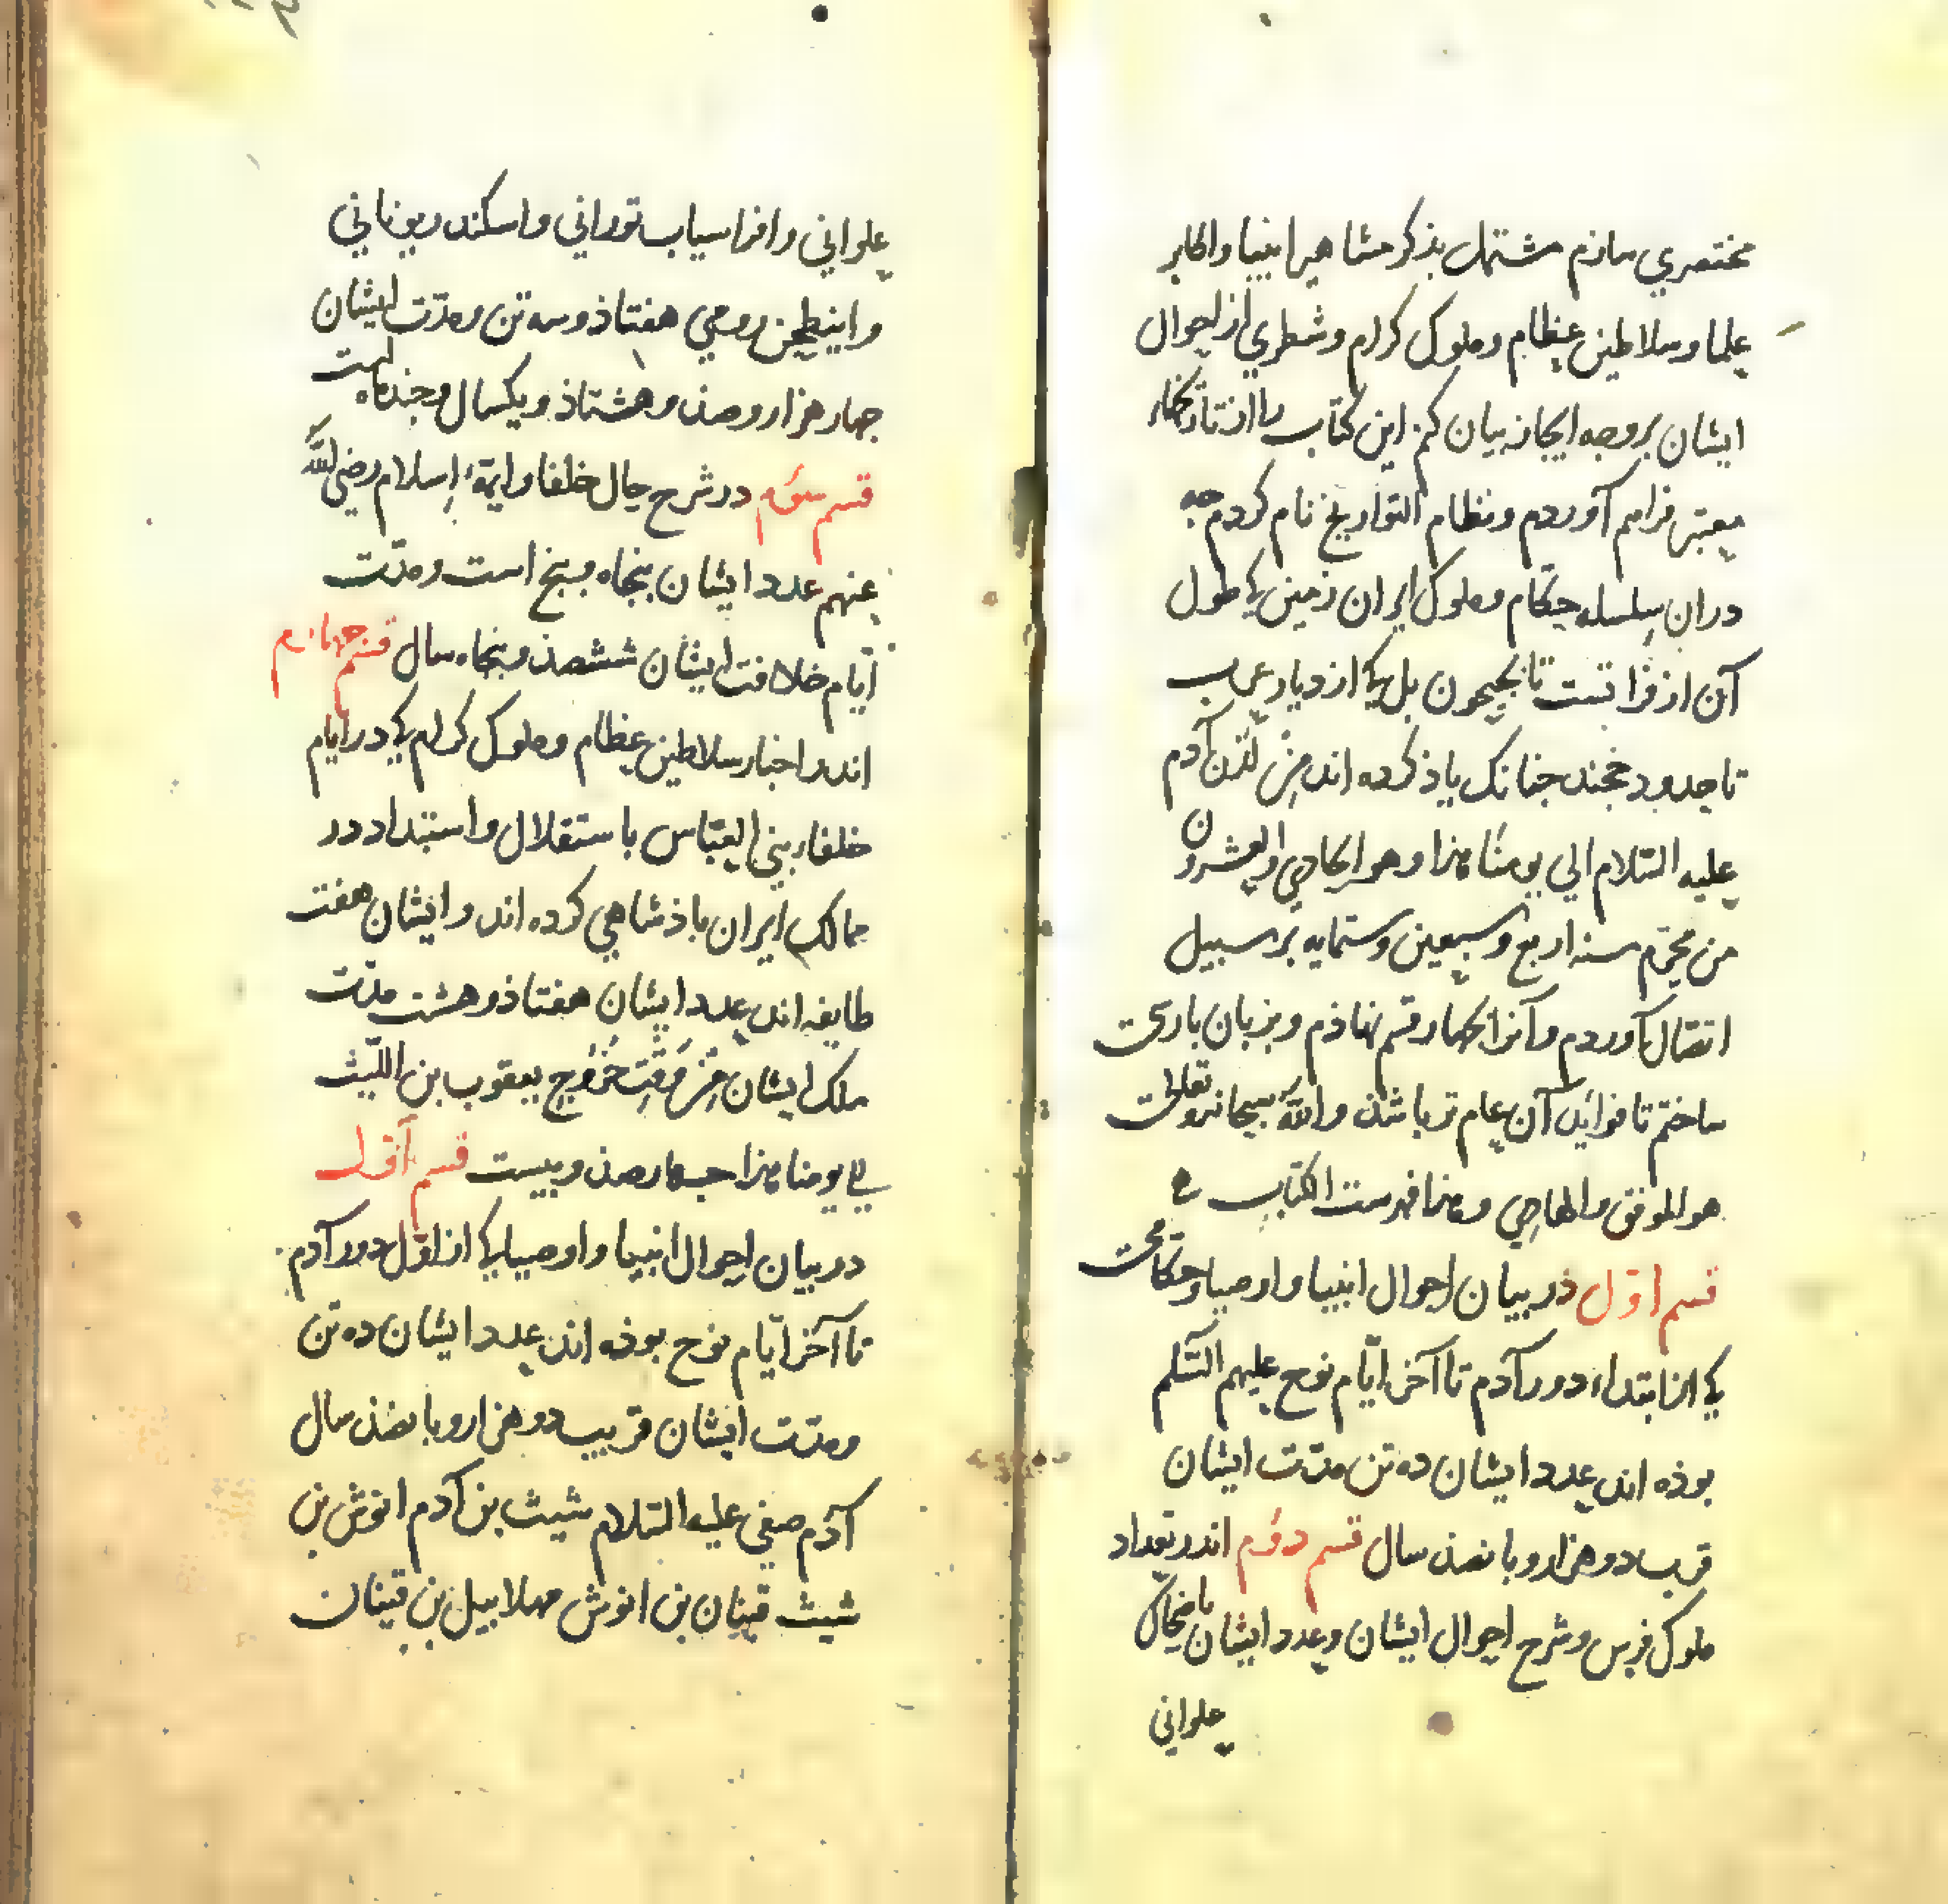 مختصري سازم مشتمل بذكر مشاهير انبيا واكابر
علما وسلاطين عظام وملوك كرام وشطري از احوال
ايشان بر وجه ايجاز بيان كنم اين كتاب را از تاريخهاء
معتبر فراهم آوردم ونظام التواريخ نام كردم جه
دران سلسله حكام وملوك ايران زمين كي طول
آن از فراتست تا بجيحون بل كي از ديار عرب
تا حدود خجند جنانك ياذ كرده اند من لدن آدم
عليه السّلام الي يومنا هذا وهو الحادي والعشرون
من محرّم سنه اربع وسبعين وستمايه بر سبيل
اتصال آوردم وآنرا بجهار قسم نهاذم وبزبان بارسي
ساختم تا فوايد آن عام تر باشذ والله سبحانه وتعالى
هو الموفق والهادي وهذا فهرست الكتاب
قسم اوّل در بيان احوال انبيا واوصيا وحكّامي
كي از ابتداء دور آدم تا آخر ايّام نوح عليهم السّلم
بوذه اند عدد ايشان ده تن مدّت ايشان
قرب دو هزار وبانصذ سال قسم دوُم اندر تعداد
ملوك فرس وشرح احوال ايشان وعدد ايشان با ضحاك
علواني
علواني وافراسياب توراني واسكندر يوناني
وابنطحن رومي هفتاذ وسه تن ومدّت ايشان
جهار هزار وصذ وهشتاذ ويكسال وجند ماهست
قسم سوُم در شرح حال خلفا وايمّهٔ اسلام رضي الله
عنهم عدد ايشان بنجاه وبنج است ومدّت
ايّام خلافت ايشان ششصذ وبنجاه سال قسم جهارم
اندر اخبار سلاطين عظام وملوك كرام كي در ايام
خلفاء بني العبّاس باستقلال واستبداد در
ممالك ايران باذشاهي كرده اند وايشان هفت
طايفه اند عدد ايشان هفتاذ وهشت مدّت
ملك ايشان مِن وَقتِ خُرُوجِ يعقوب بن اللّيث
الي يومنا هذا جهارصذ وبيست قسم اوّل
در بيان احوال انبيا واوصيا كي از اوّل دور آدم
تا آخر ايّام نوح بوذه اند عدد ايشان ده تن
ومدّت ايشان قريب دو هزار وبانصذ سال
آدم صفي عليه السّلام شيث بن آدم انوش بن
شيث قينان بن انوش مهلاييل بن قينان